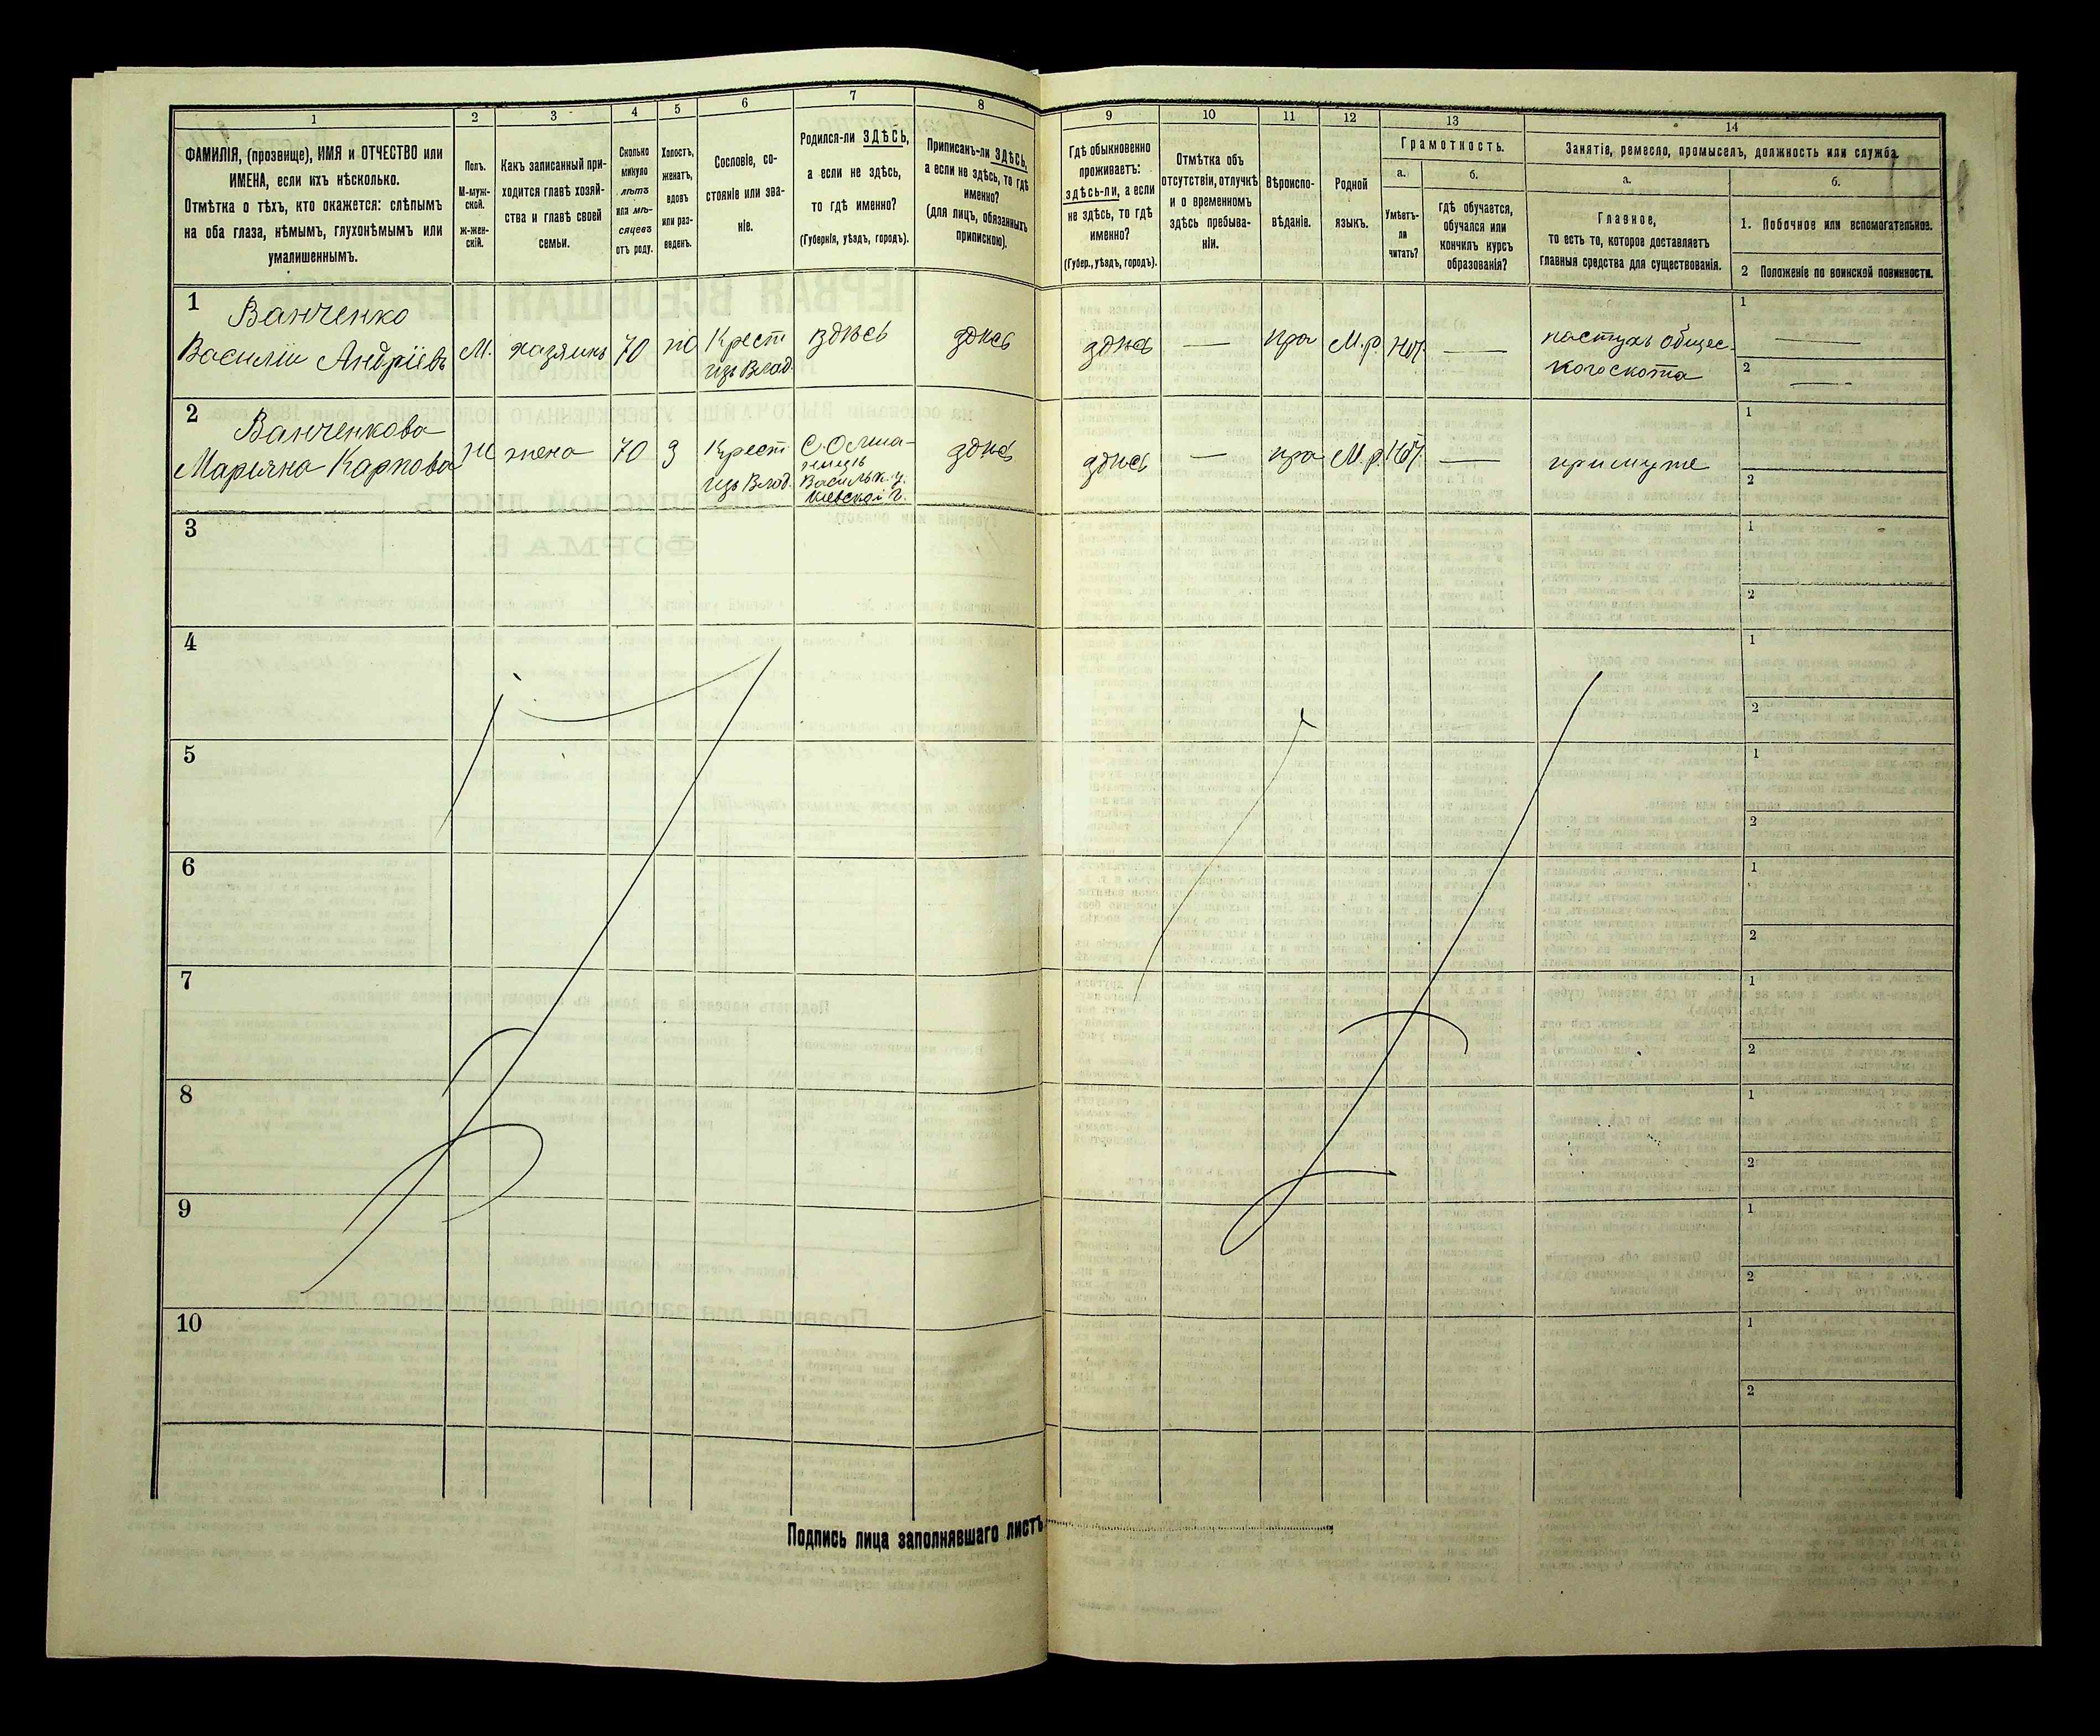 1
2
3
4
5
6
7
8
9
10
11
12
13
14
ФАМИЛІЯ, (прозвище), ИМЯ и ОТЧЕСТВО или
ИМЕНА, если ихъ нѣсколько.
Отмѣтка о тѣхъ, кто окажется: слѣпымъ
на оба глаза, нѣмымъ, глухонѣмымъ или
умалишеннымъ.
Полъ.
М-муж-
ской.
ж-жен-
скій.
Какъ записанный при-
ходится главѣ хозяй-
ства и главѣ своей
семьи.
Сколько
минуло
лѣтъ
или мѣ-
сяцевъ
отъ роду.
Холостъ,
женатъ,
вдовъ
или раз-
веденъ.
Сословіе, со-
стояніе или зва-
ніе.
Родился-ли ЗДѢСЬ,
а если не здѣсь,
то гдѣ именно?
(Губернія, уѣздъ, городъ).
Приписанъ-ли ЗДѢСЬ,
а если не здѣсь, то гдѣ
именно?
(для лицъ, обязанныхъ
припискою).
Гдѣ обыкновенно
проживаетъ:
здѣсь-ли, а если
не здѣсь, то гдѣ
именно?
(Губер., уѣздъ, городъ).
Отмѣтка объ
отсутствіи, отлучкѣ
и о временномъ
здѣсь пребыва-
ніи.
Вѣроиспо-
вѣданіе.
Родной
языкъ.
Грамотность.
а.
Умѣетъ-
ли
читать?
б.
гдѣ обучается,
обучался или
кончилъ курсъ
образованія?
Занятіе, ремесло, промыселъ, должность или служба.
а.
Главное,
то есть то, которое доставляетъ
главныя средства для существованія.
б.
1. Побочное или вспомогательное.
2 Положеніе по воинской повинности.
1
Ванченко
Василій Андріевъ
М.
хазяинъ
70
Крест
изъ Влад.
здѣсь
здѣсь
здѣсь
—
пра
М.р.
—
пастухъ общес-
кого скота
1 —
2 —
2
Ванченкова
Марьяна Карпова
Ж
жена
70
з
Крест
изъ Влад.
Васильк. у.
Кіевской г.
здѣсь
здѣсь
—
пра
М.р.
—
при муже
1
2
3
1
2
4
1
2
5
1
2
6
1
2
7
1
2
8
1
2
9
1
2
10
1
2
Подпись лица заполнявшаго листъ